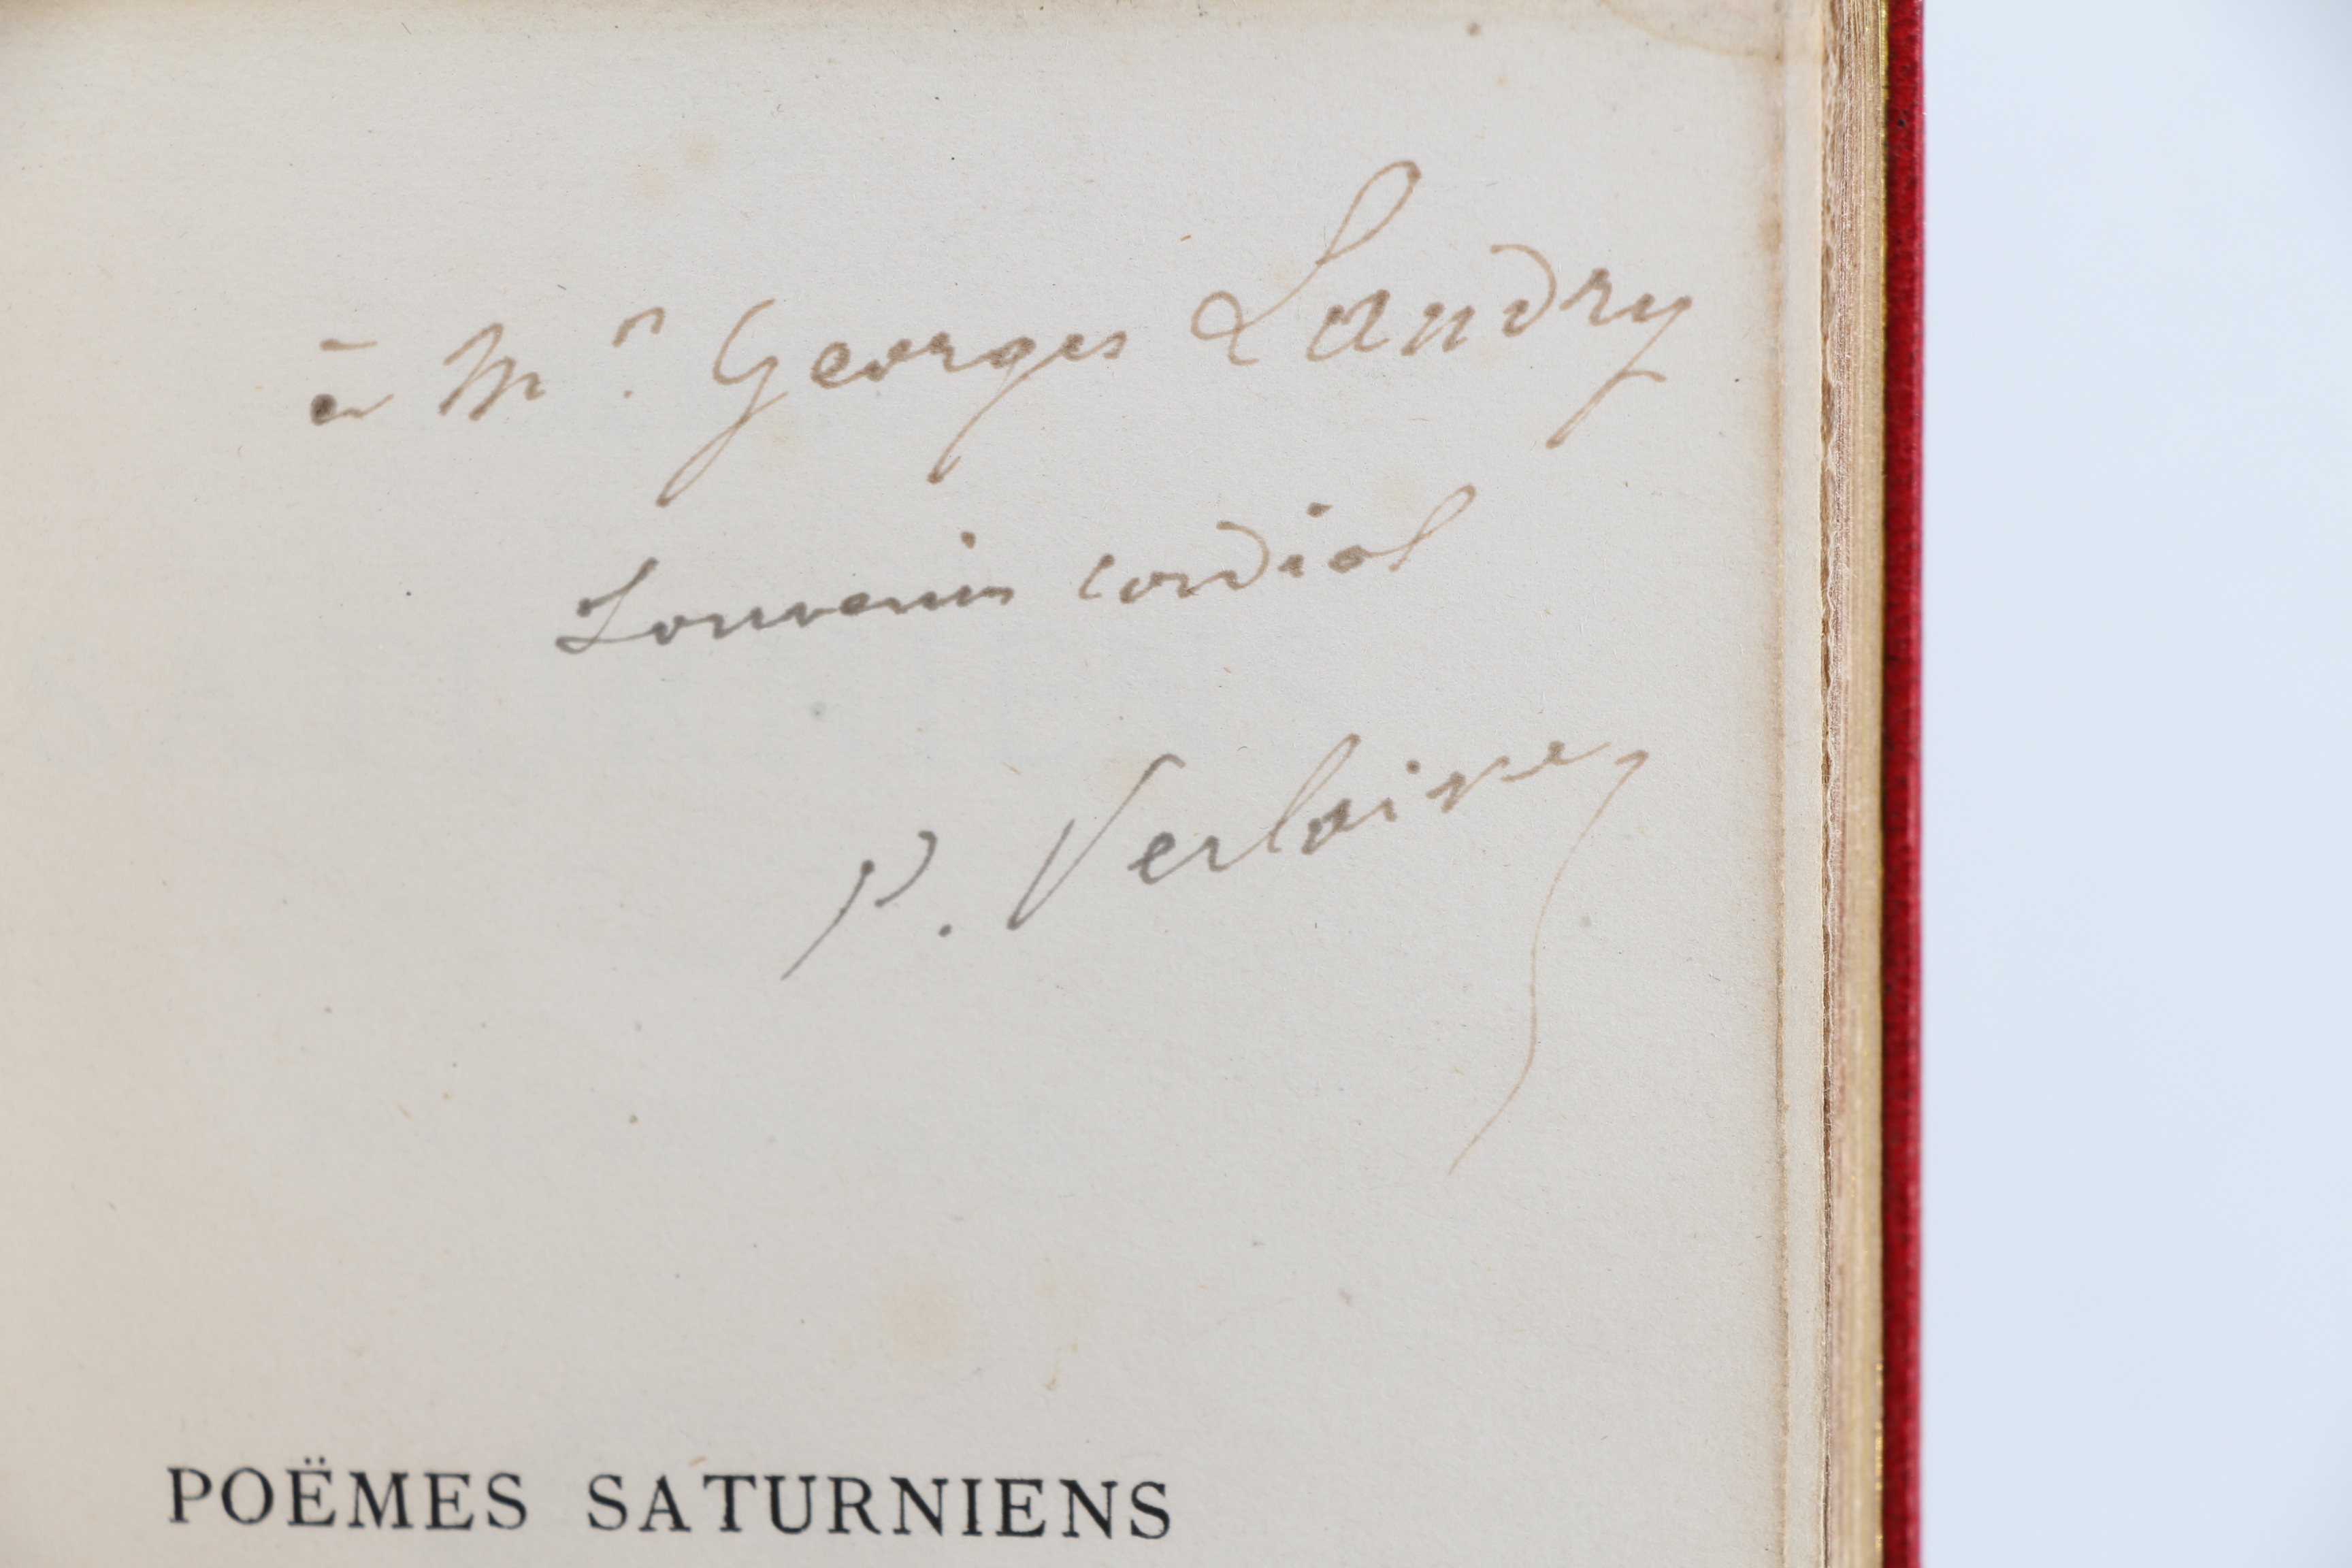 à Mr. Georges Landry
Souvenir cordial
P. Verlaine
POËMES SATURNIENS